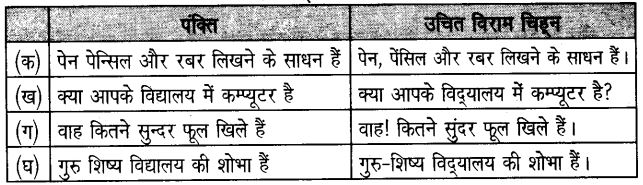 पंक्ति उचित विराम चिह्‌न
(क) पेन पेन्सिल और रबर लिखने के साधन हैं पेन, पेंसिल और रबर लिखने के साधन हैं।
(ख) क्या आपके विद्यालय में कम्प्यूटर है क्या आपके विद्‌यालय में कम्प्यूटर है?
(ग) वाह कितने सुन्दर फूल खिले हैं वाह! कितने सुंदर फूल खिले हैं।
(घ) गुरु शिष्य विद्यालय की शोभा हैं गुरु-शिष्य विद्‌यालय की शोभा हैं।